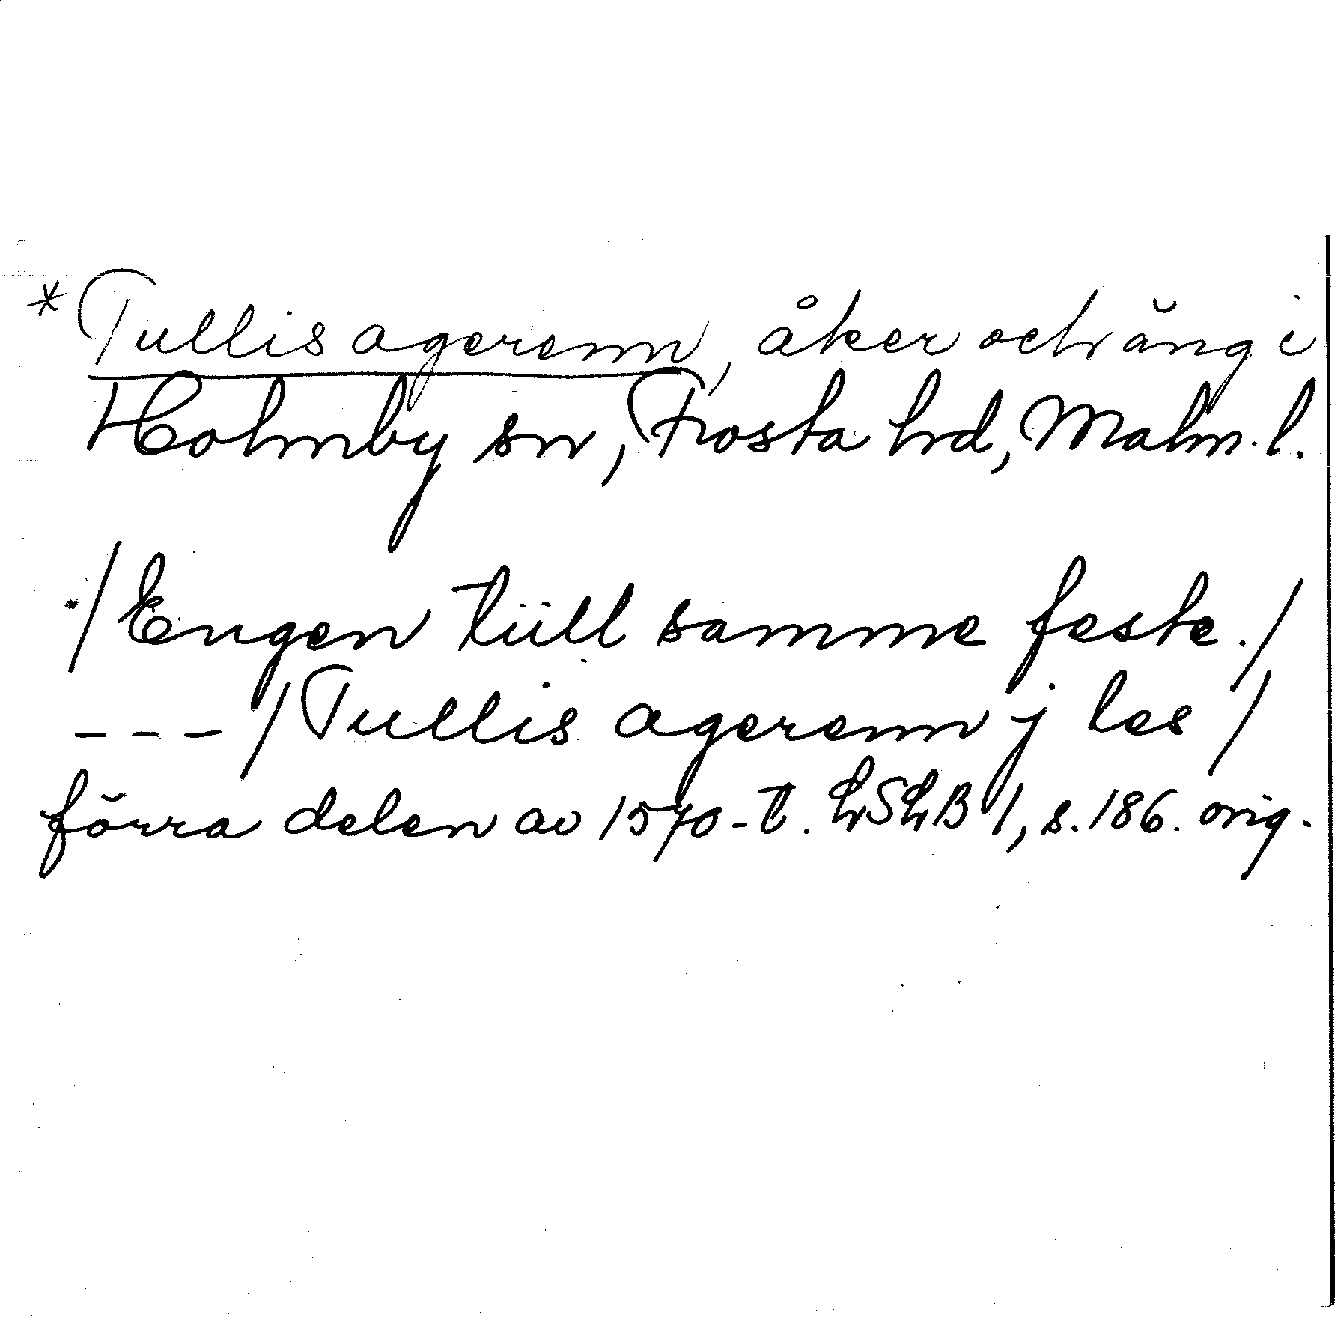 * Tullis agerenn, åker och äng i
Holmby sn, Frosta hd, Malm. l.
/Engen tüll samme feste./
---/Tullis agerenn j les/
förra delen av 1570-t. LSLB 1, s. 186. orig.